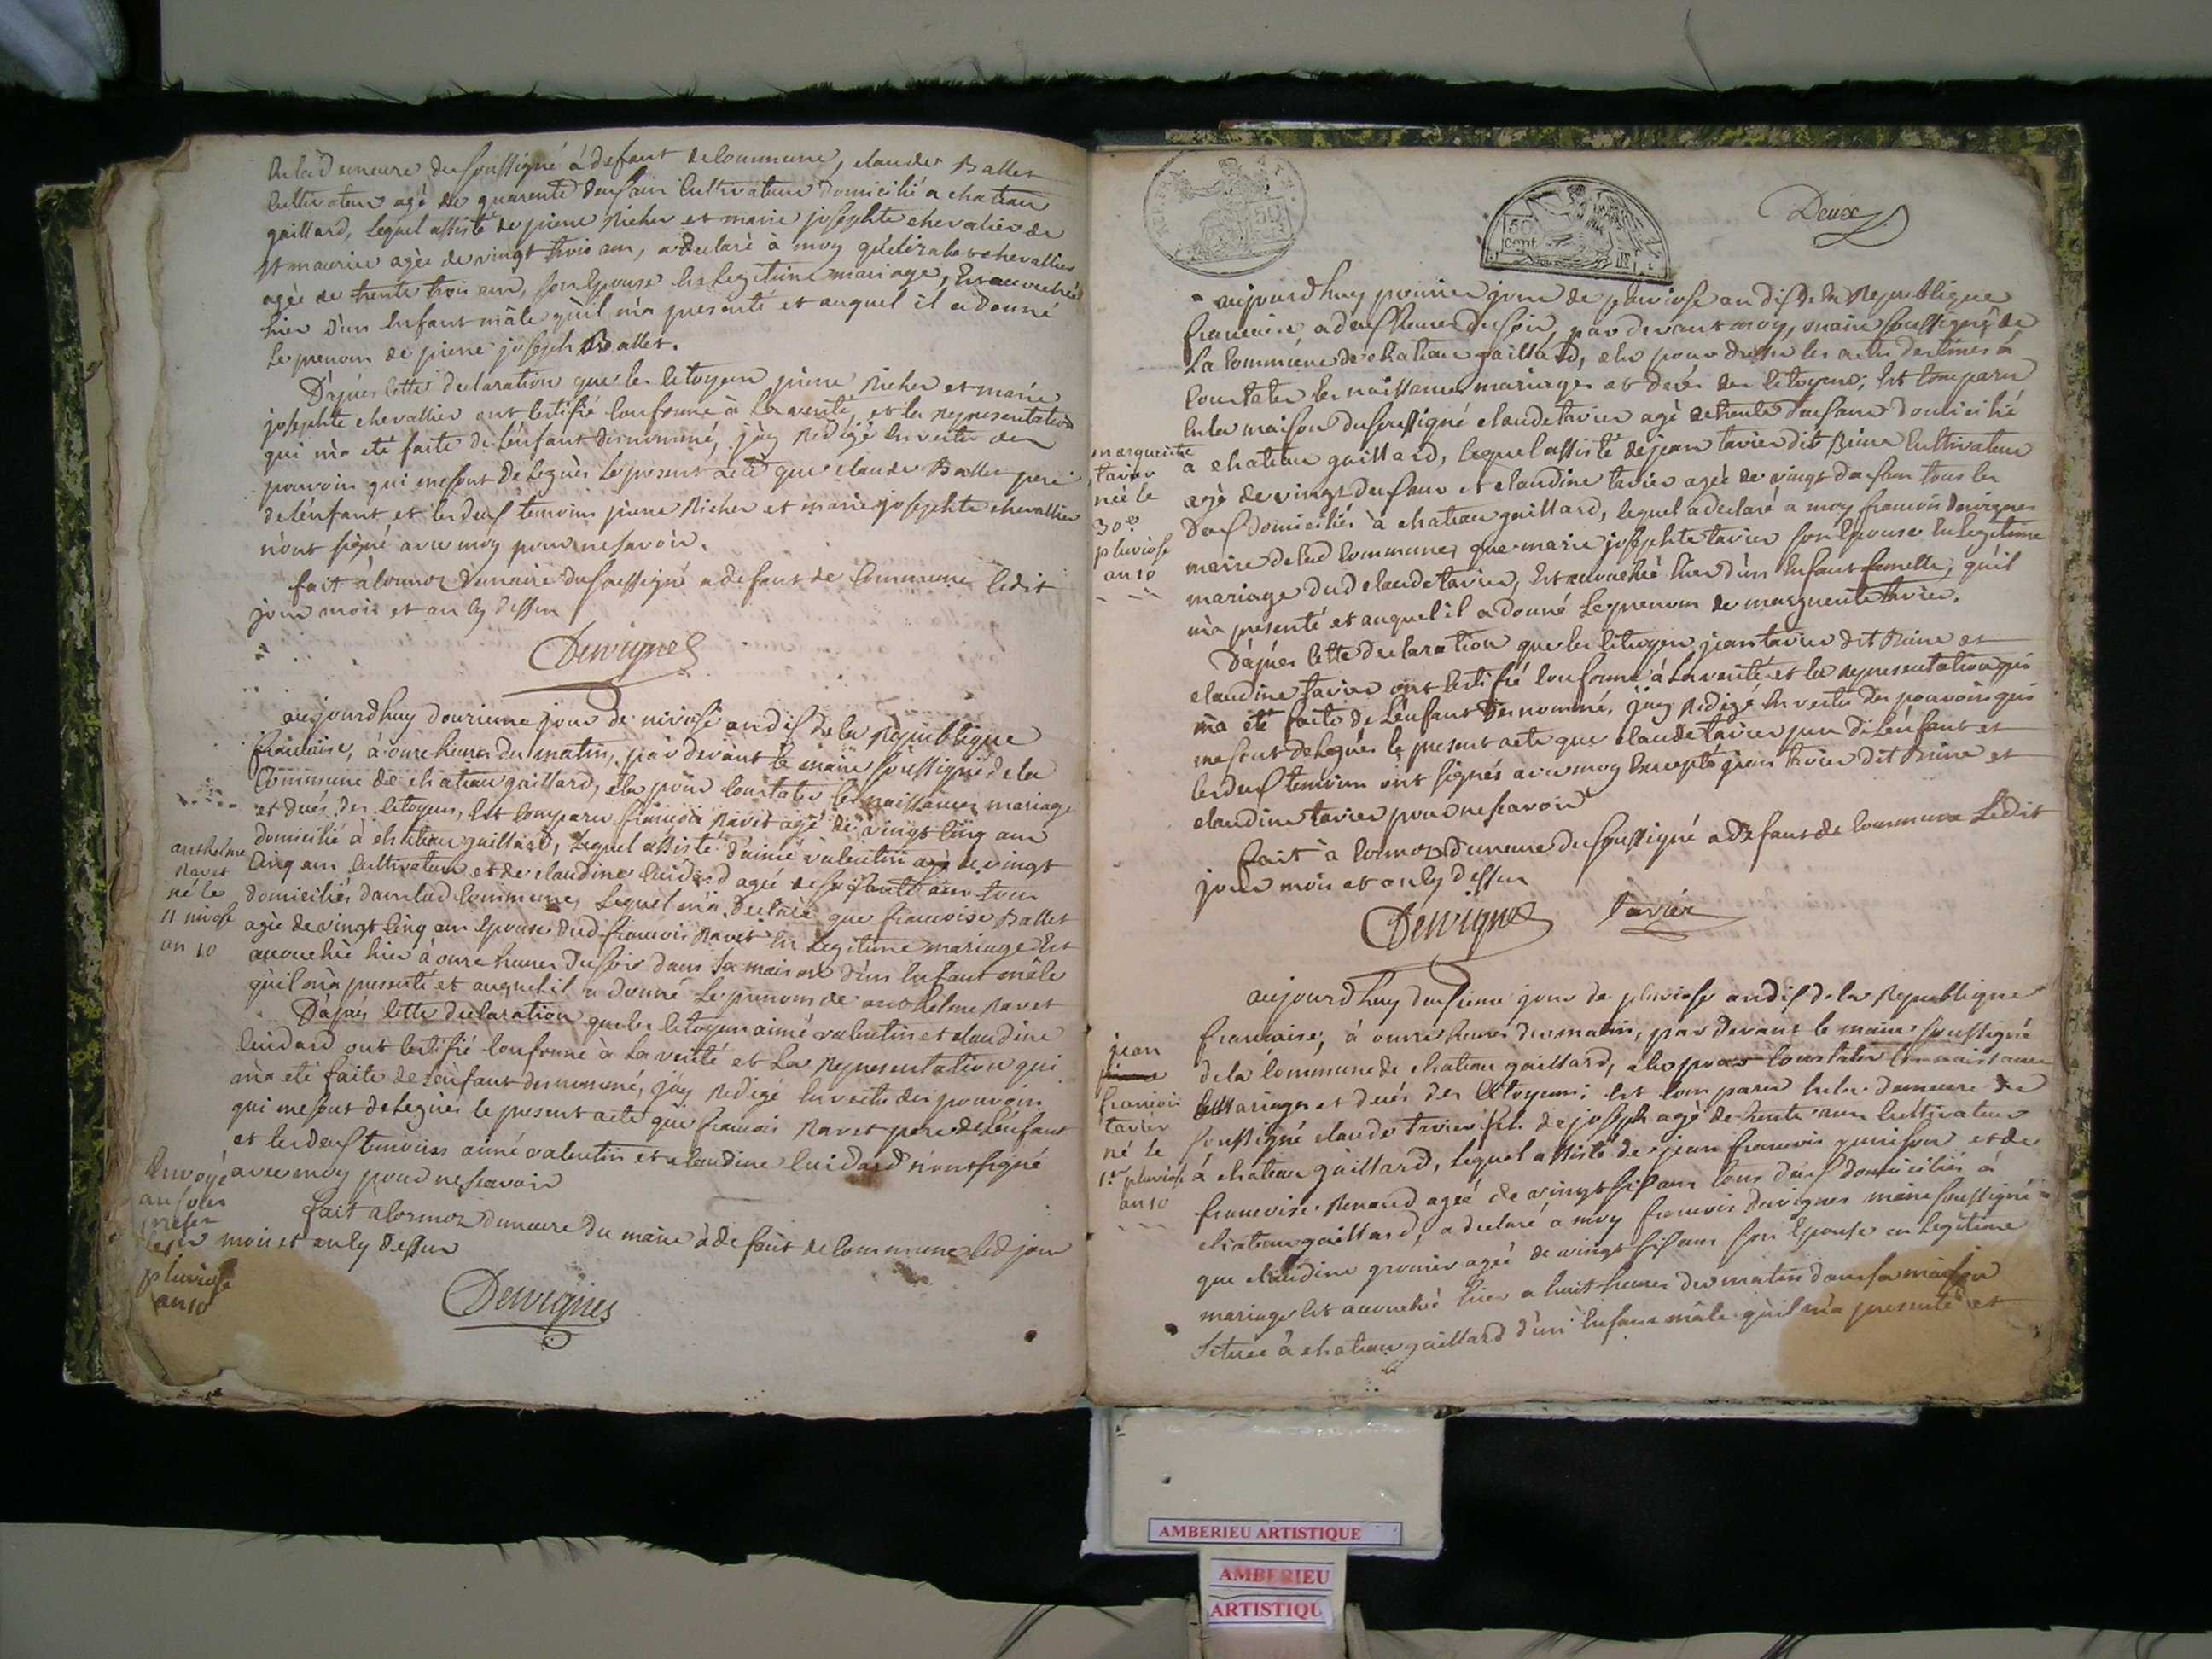 demeure du soussigné à defaut de commune, claude Ballet
cultivateur agé de quarente deux ans cultivateur domicilié a chateau
gaillard, lequel assisté de pierre Richer et marie josephte chevalier de
st maurice agée de vingt trois ans, a declaré à moy chevallier
agée de trente trois ans, son epouse en legitime mariage, est accouchée
hier d'un enfant mâle qu'il m'a presenté et auquel il a donné
le prenom de pierre joseph Ballet.
D'après cette declaration que les citoyens pierre Richer et marie
josephte chevallier ont certifié conforme à la verité, et la representation
qui m'a eté faite de l'enfant denommé, j'ay redigé en vertu des
pouvoirs qui me sont delegués le present acte que claude Ballet pere
de l'enfant et les deux temoins pierre Richer et marie josephte chevallier
n'ont signé avec moy pour ne savoir.
fait à cormoz demeure du soussigné a defaut de commune ledit
jour mois et an cy dessus
Dervignes
aujourdhuy douzieme jour de nivose an dix de la Republique
francaise, à onze heures du matin, par devant le maire soussigné de la
commune de chateau gaillard, elu pour constater les naissances mariage
et decés des citoyens, est comparu francois Ravet agé de vingt cinq ans
domicilié à chateau gaillard, lequel assisté d'aimé valentin agé de vingt
cinq ans cultivateur et de claudine cuidard agée de soixante ans tous
domiciliés dans lad commune, lequel m'a declaré que francoise Ballet
agée de vingt cinq ans epouse dud francois Ravet en legitime mariage est
accouchée hier à onze heures du soir dans sa maison d'un enfant mâle
qu'il m'a presenté et auquel il a donné le prenom de anthelme Ravet
anthelme
Ravet
né le
11 nivose
an 10
D'après cette declaration que les citoyens aimé valentin et claudine
cuidard ont certifié conforme à la verité et la representation qui
m'a eté faite de l'enfant denommé, j'ay redigé en vertu des pouvoirs
qui me sont delegués le present acte que francois Ravet pere de l'enfant
et les deux temoins aimé valentin et claudine cuidard n'ont signé
avec moy pour ne scavoir
fait à cormoz demeure du maire à defaut de commune led jour
mois et an cy dessus
Envoyé
au sous
prefet
le
pluviose
an 10
Dervignes
50
50
cent
Deux
aujourdhuy premier jour de pluviose an dix de la Republique
francaise a deux heures du soir, par devant moy, maire soussigné de
la commune de chateau gaillard, elu pour dresser les actes destinés à
constater les naissances mariages et decés des citoyens; est comparu
en la maison du soussigné claude tavier agé de trente deux ans domicilié
à chateau gaillard, lequel assisté de jean tavier dit Rime cultivateur
agé de vingt deux ans et claudine tavier agée de vingt deux ans tous les
deux domiciliés à chateau gaillard, lequel a declaré a moy francois dervignes
maire de lad commune, que marie josephte tavier son epouse en legitime
mariage dud claude tavier, est accouchée hier d'un enfant femelle, qu'il
m'a presenté et auquel il a donné le prenom de marguerite tavier.
marguerite
tavier
née le
30e
pluviose
an 10
D'après cette declaration que les citoyens jean tavier dit Rime et
claudine tavier ont certifié conforme à la verité et la representation qui
m'a eté faite de l'enfant denommé, j'ay redigé en vertu des pouvoirs qui
me sont delegués le present acte que claude tavier pere de l'enfant et
les deux temoins ont signés avec moy excepté jean tavier dit Rime et
claudine tavier pour ne scavoir
fait à cormoz demeure du soussigné a defaut de commune ledit
jour mois et an cy dessus
Dervignes tavier
aujourdhuy deuxieme jour de pluviose an dix de la Republique
francaise, à onze heures du matin, par devant le maire soussigné
de la commune de chateau gaillard, elu pour constater les naissances
les mariages et decés des citoyens; est comparu en la demeure du
soussigné claude tavier fils de joseph agé de trente ans cultivateur
à chateau gaillard, lequel assisté de jean francois et de
francoise Renard agée de vingt six ans tous deux domiciliés à
chateau gaillard, a declaré a moy francois dervignes maire soussigné
que claudine agée de vingt six ans son epouse en legitime
mariage est accouchée hier a huit heures du matin dans sa maison
située à chateau gaillard d'un enfant mâle qu'il m'a presenté et
jean
francois
tavier
né le
1er pluviose
an 10
AMBERIEU ARTISTIQUE
AMBERIEU
ARTISTIQU